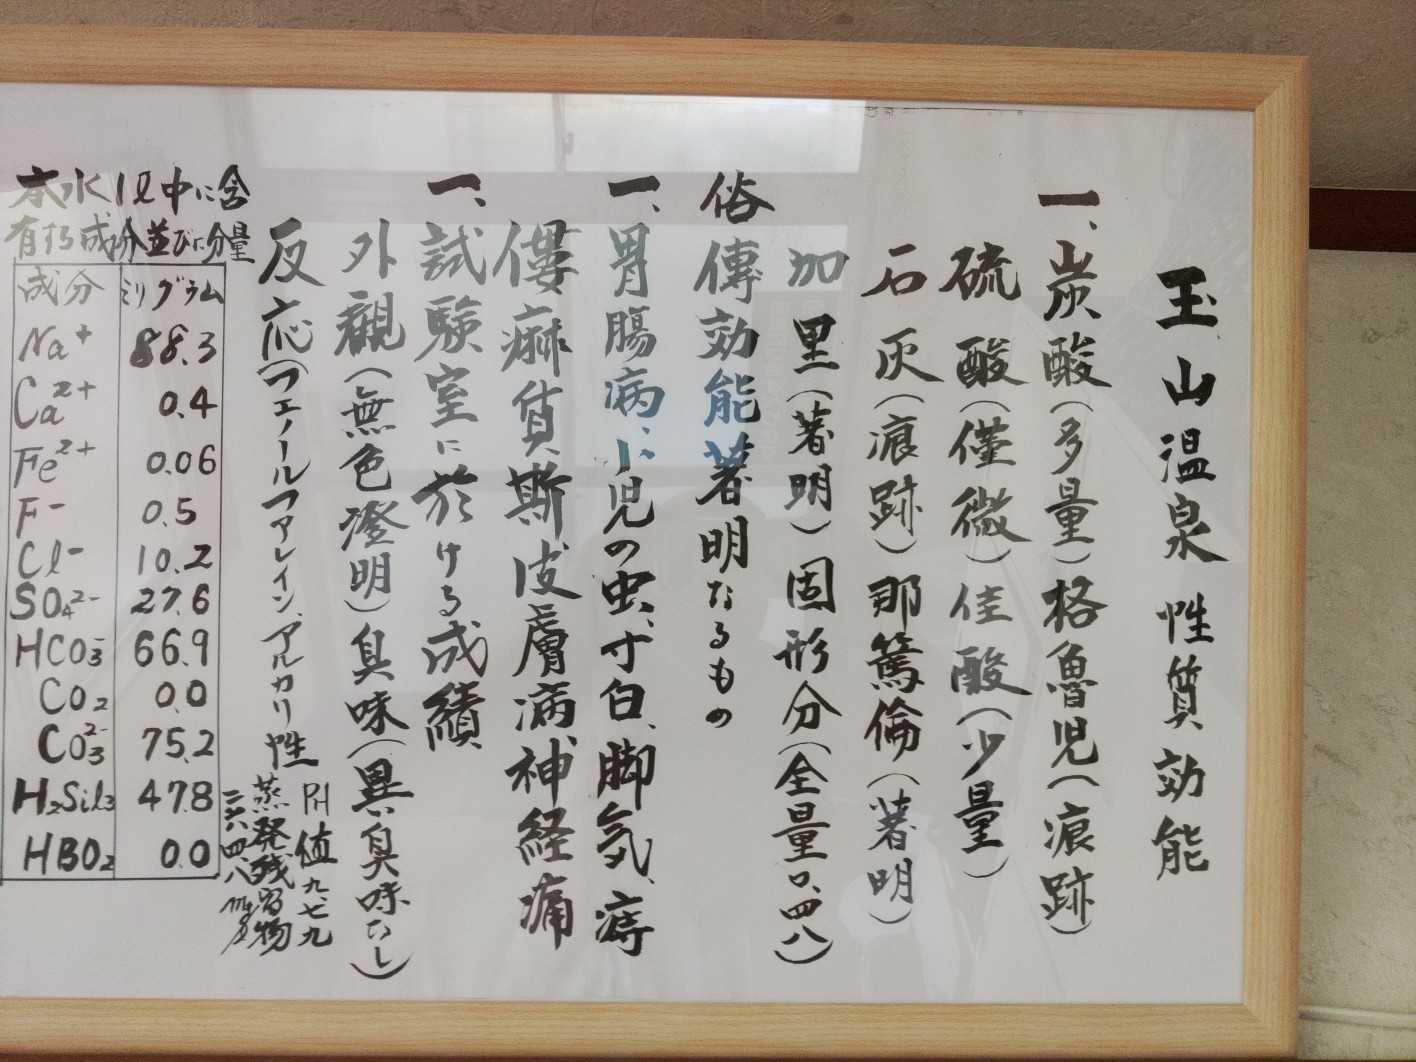 玉山温泉 性質効能
一、炭酸(多量)格魯児(痕跡)
硫酸(僅微)佳酸(少量)
石灰(痕跡)那篤倫(著明)
加里(著明)固形分(全量〇、四八)
俗傳効能著明なるもの
一、胃腸病、小児の虫、寸白、脚気、痔
僂麻質斯皮膚病、神経痛
一、試験室に於ける成績
外觀(無色澄明)臭味(異臭味なし)
反応(フェノールフタレイン、アルカリ性
PH値九、七九
蒸発残留物
二六四、八mg
本水1l中に含
有する成分並びに分量
成分 ミリグラム
Na+ 88.3
Ca2+ 0.4
Fe2+ 0.06
F- 0.5
Cl- 10.2
SO42- 27.6
HCO3- 66.9
CO2 0.0
CO32- 75.2
H2SiO3 47.8
HBO2 0.0